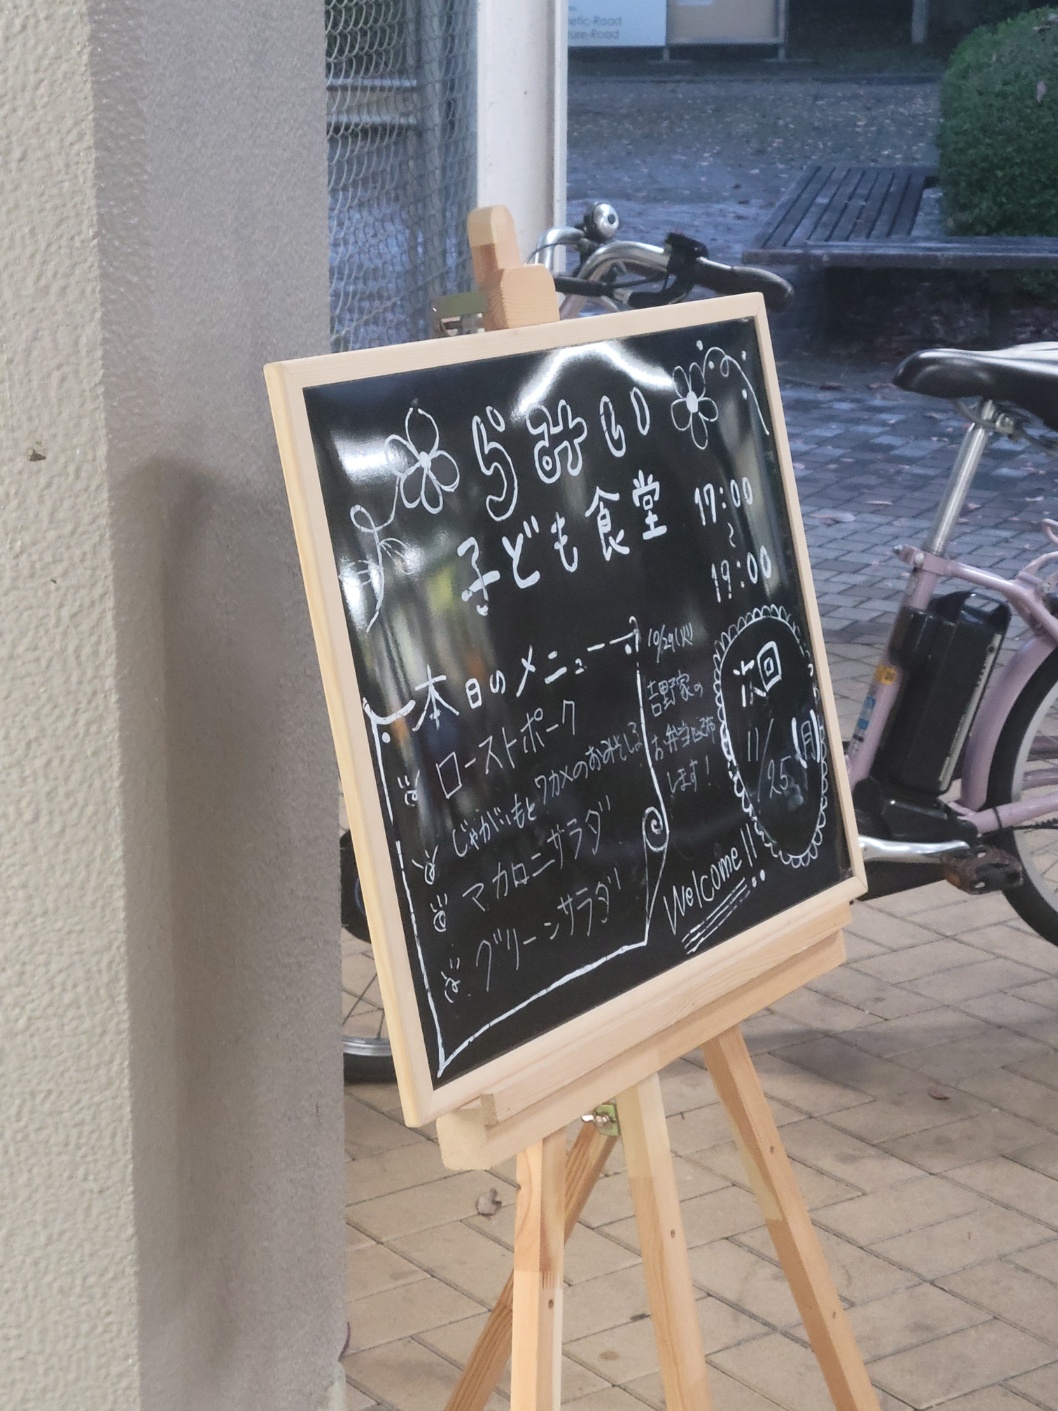 netic-Road
ure-Road
らみい
子ども食堂
17:00
〜
19:00
本日のメニュー
ローストポーク
じゃがいもとワカメのおみそしる
マカロニサラダ
グリーンサラダ
10/29(火)
吉野家の
お弁当配布
します!
次回
11/25(月)
Welcome!!